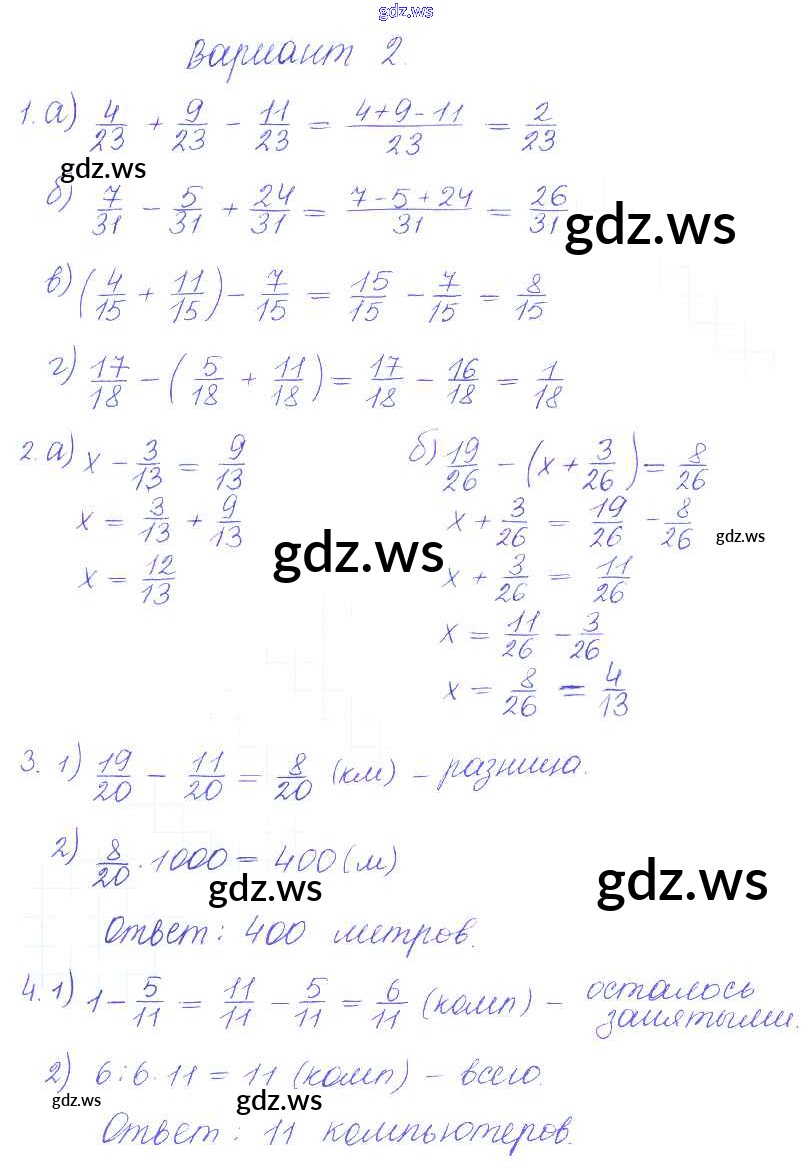 gdz.ws
Вариант 2.
1. а) 4/23 + 9/23 - 11/23 = (4+9-11)/23 = 2/23
gdz.ws
б) 7/31 - 5/31 + 24/31 = (7-5+24)/31 = 26/31
gdz.ws
в) (4/15 + 11/15) - 7/15 = 15/15 - 7/15 = 8/15
г) 17/18 - (5/18 + 11/18) = 17/18 - 16/18 = 1/18
2. а) x - 3/13 = 9/13
x = 3/13 + 9/13
x = 12/13
gdz.ws
б) 19/26 - (x + 3/26) = 8/26
x + 3/26 = 19/26 - 8/26
gdz.ws
x + 3/26 = 11/26
x = 11/26 - 3/26
x = 8/26 = 4/13
3. 1) 19/20 - 11/20 = 8/20 (км) - разница.
2) 8/20 · 1000 = 400 (м)
gdz.ws
gdz.ws
Ответ: 400 метров.
4. 1) 1 - 5/11 = 11/11 - 5/11 = 6/11 (комп) - осталось
занятыми.
2) 6:6·11 = 11 (комп) - всего.
gdz.ws
gdz.ws
Ответ: 11 компьютеров.